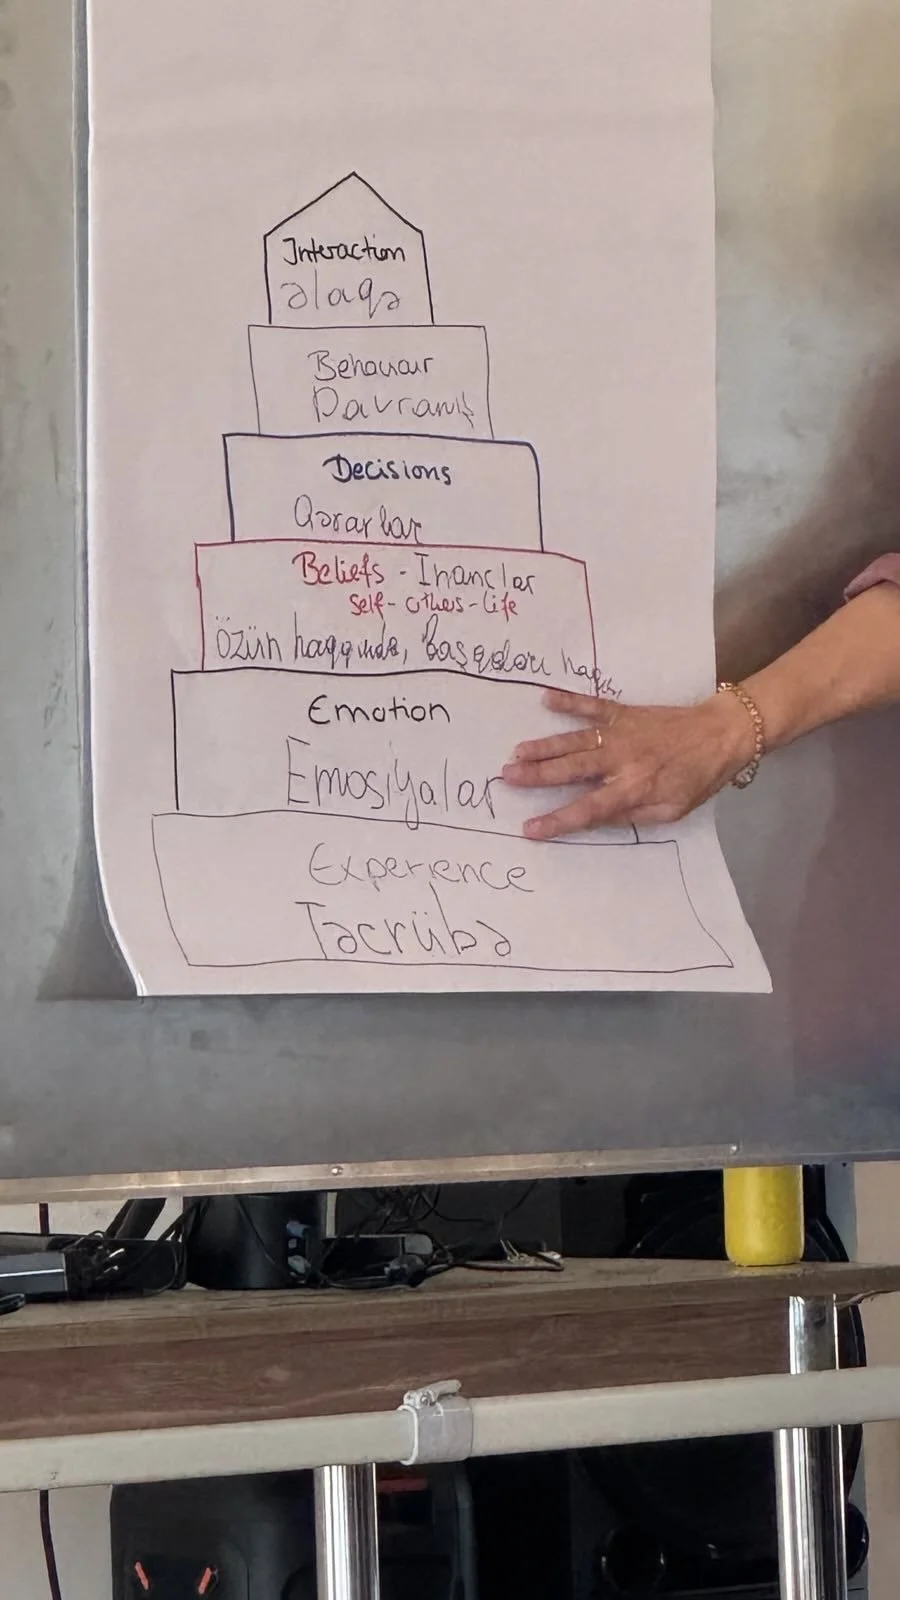 Interaction
əlaqə
Behaviour
Davranış
Decisions
Qərarlar
Beliefs - İnanclar
Self - others - Life
Özün haqqında, başqaları
Emotion
Emosiyalar
Experience
Təcrübə